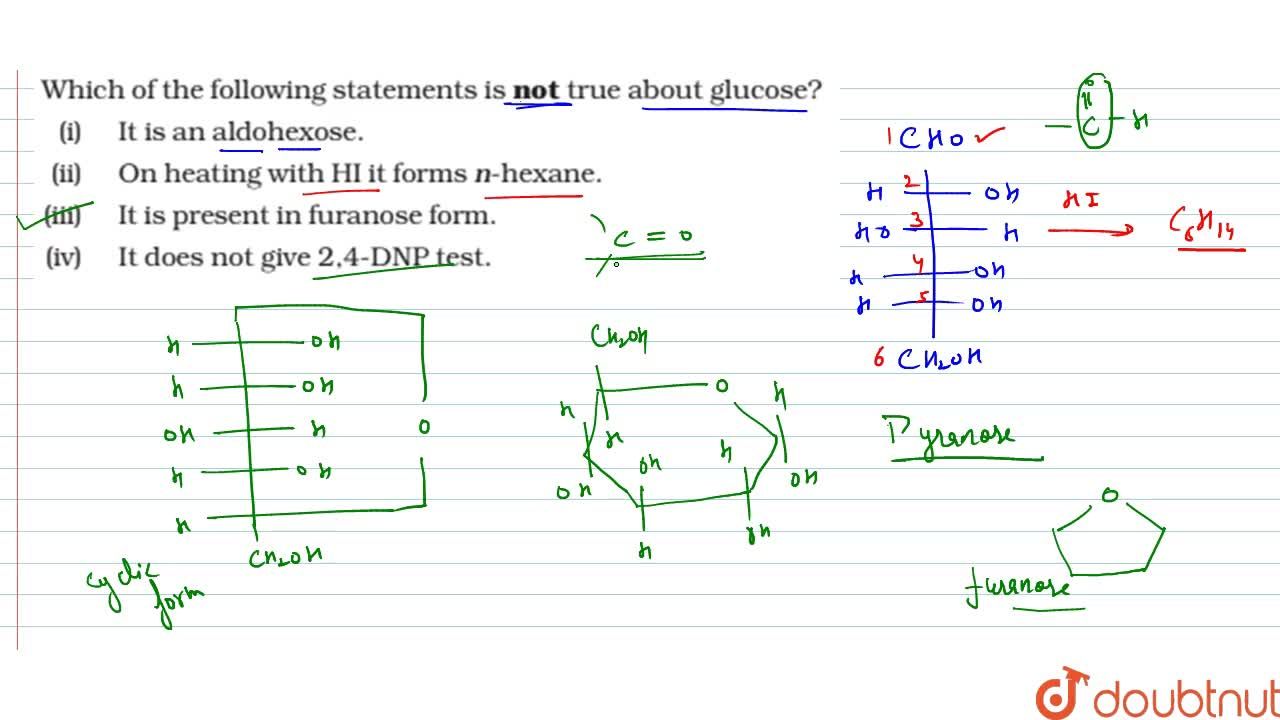 Which of the following statements is not true about glucose?
(i) It is an aldohexose.
(ii) On heating with HI it forms n-hexane.
(iii) It is present in furanose form.
(iv) It does not give 2,4-DNP test.
C = O
O
C H
1 CHO
H 2 OH
HO 3 H
H 4 OH
H 5 OH
6 CH2OH
HI
C6H14
H OH
H OH
OH H O
H OH
H
CH2OH
cyclic
form
CH2OH
O
H H
H
OH H
OH OH
H OH
Pyranose
O
furanose
doubtnut